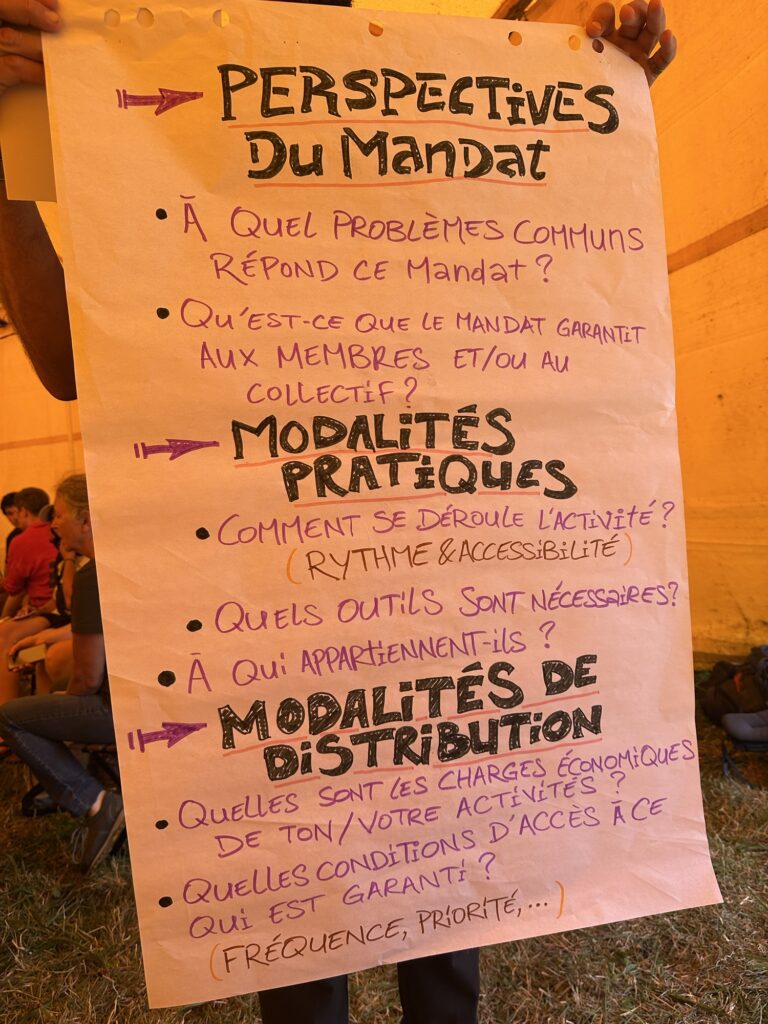 PERSPECTIVES
DU MANDAT
• À QUEL PROBLÈMES COMMUNS
RÉPOND CE MANDAT ?
• QU'EST-CE QUE LE MANDAT GARANTIT
AUX MEMBRES ET/OU AU
COLLECTIF ?
MODALITÉS
PRATIQUES
• COMMENT SE DÉROULE L'ACTIVITÉ ?
(RYTHME & ACCESSIBILITÉ)
• QUELS OUTILS SONT NÉCESSAIRES ?
• À QUI APPARTIENNENT-ILS ?
MODALITÉS DE
DISTRIBUTION
• QUELLES SONT LES CHARGES ÉCONOMIQUES
DE TON/VOTRE ACTIVITÉS ?
• QUELLES CONDITIONS D'ACCÈS À CE
QUI EST GARANTI ?
(FRÉQUENCE, PRIORITÉ, ...)